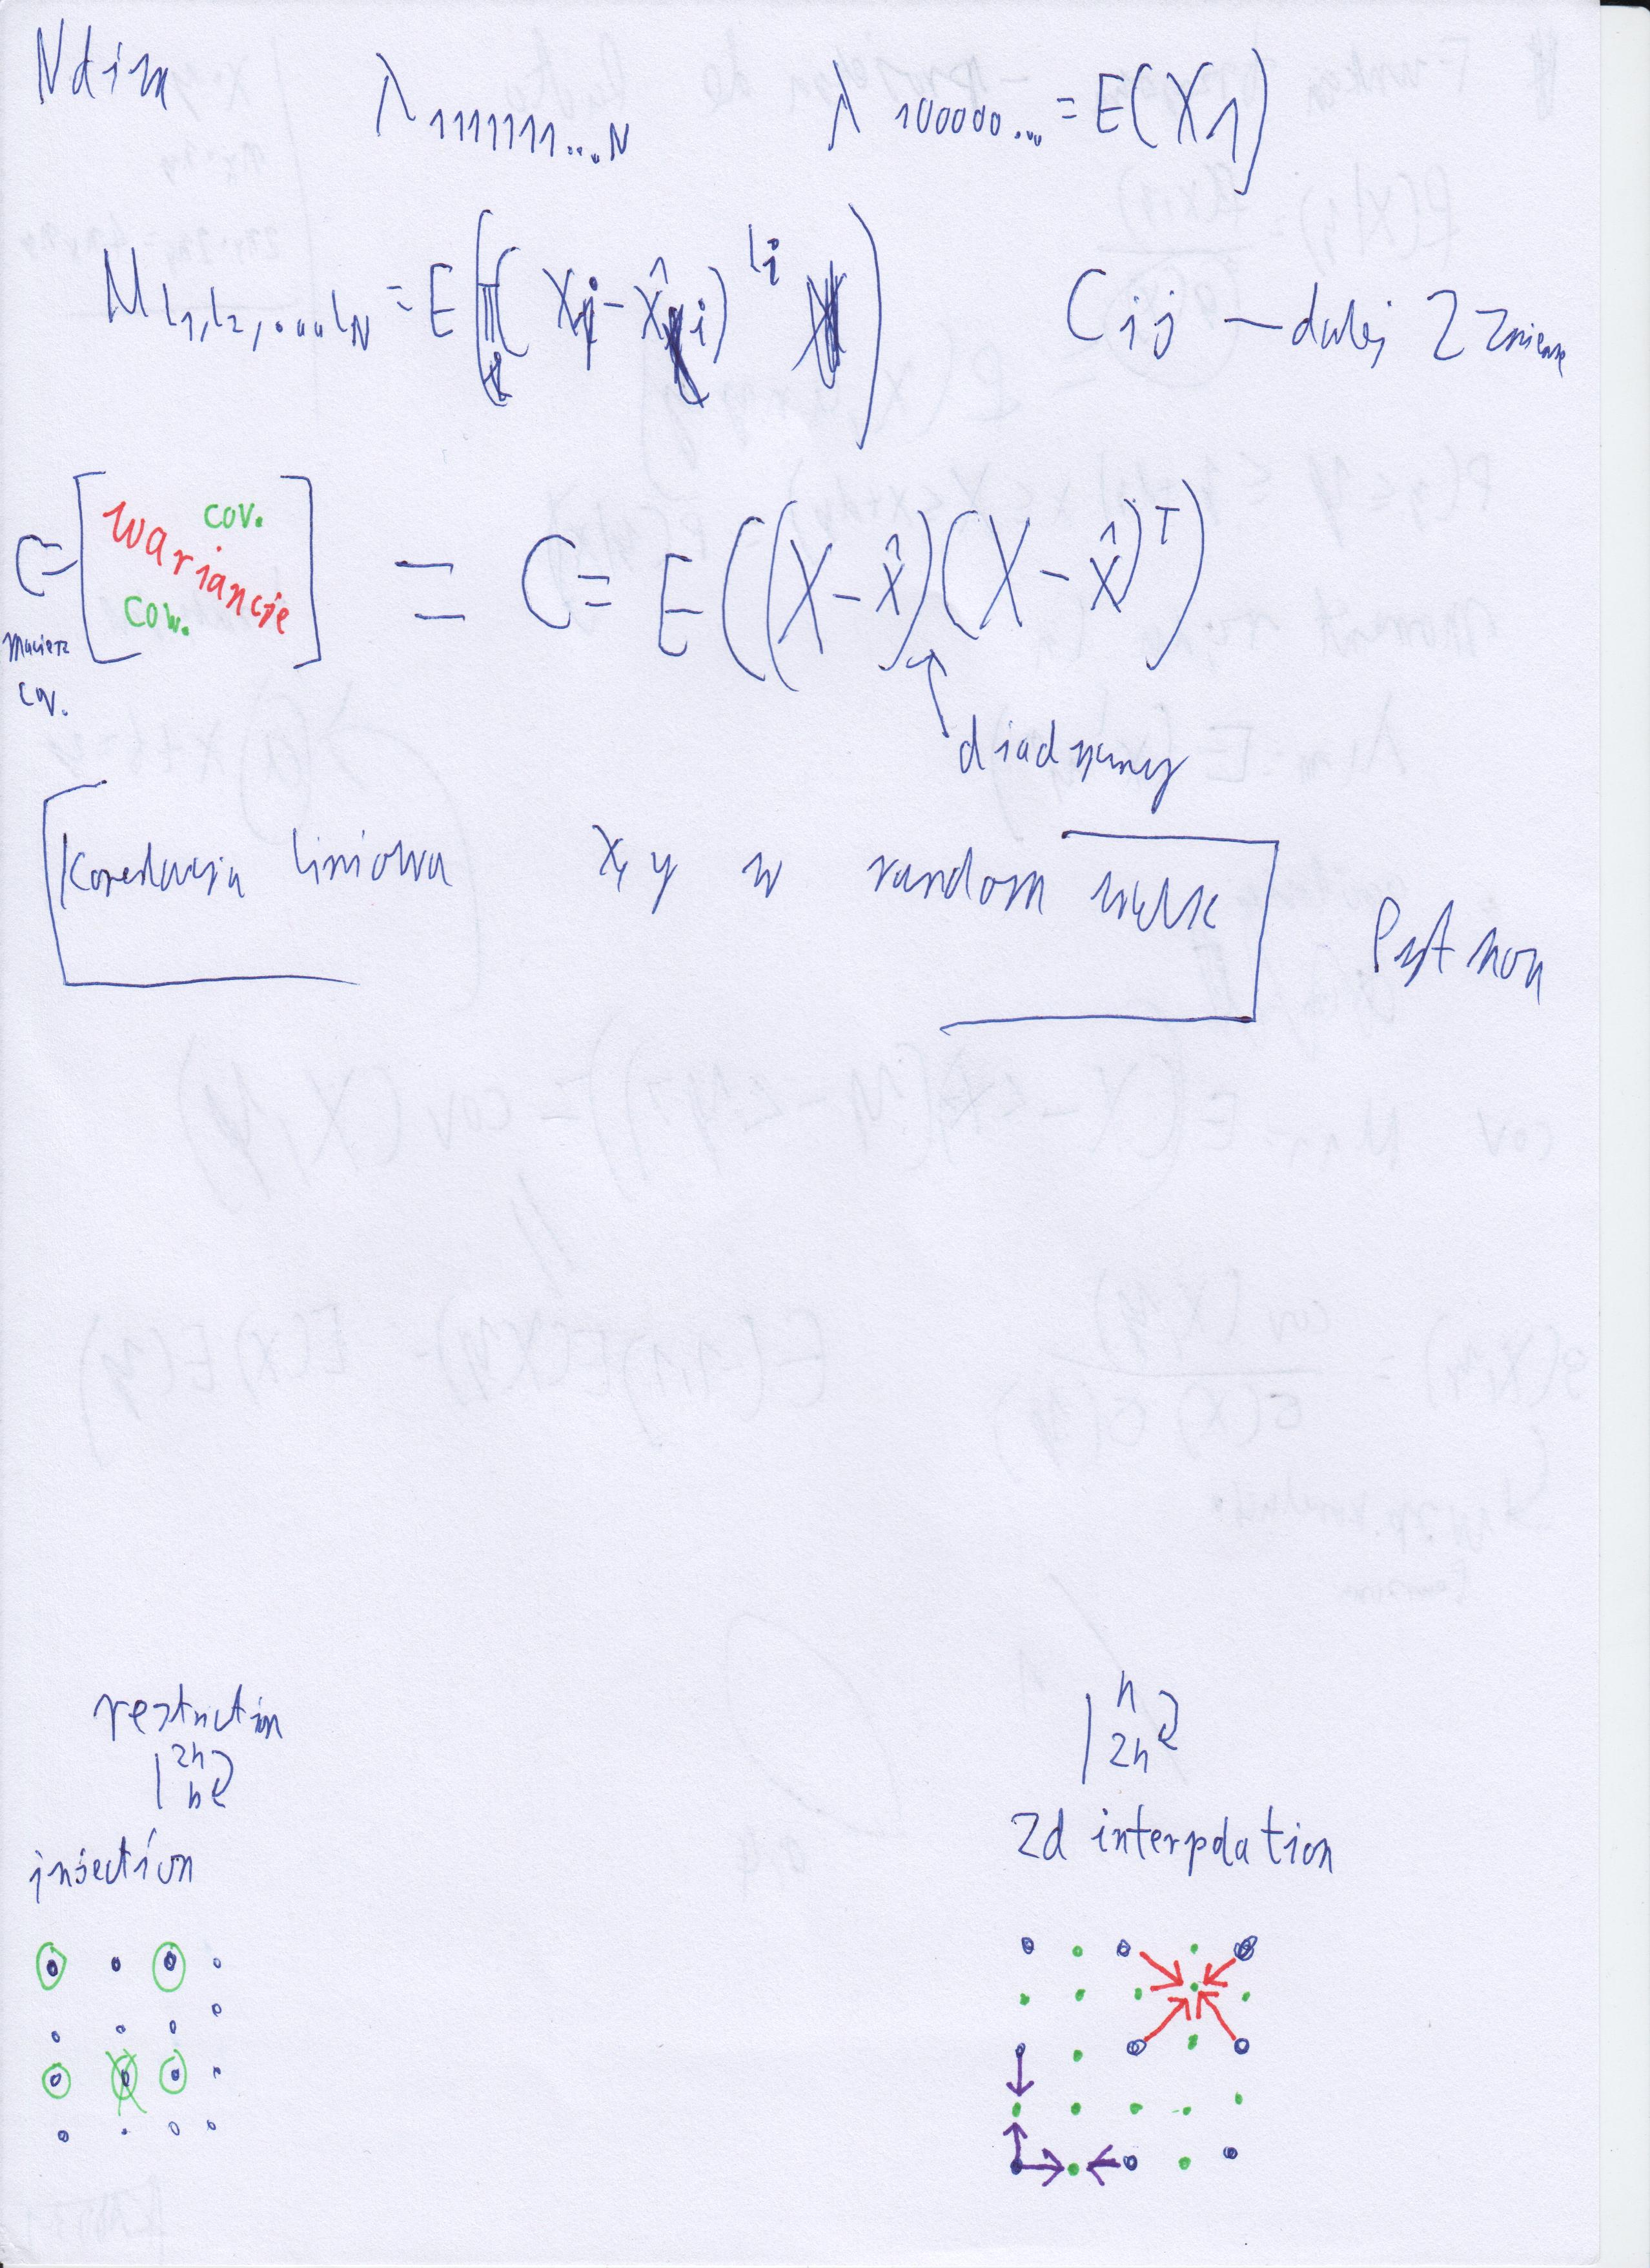 Ndim
λ₁₁₁₁₁₁₁...N λ₁₀₀₀₀₀... = E(X₁)
M_{l₁,l₂,...lN} = E(∏(Xi - x̂i)^{li}) Cij - dalej 2 zmienne
C = [wariancje cov. cow.] = C = E((X - x̂)(X - x̂)ᵀ)
macierz
cov.
diadyczny
Korelacja liniowa x, y w random walk
Python
restriction
I 2h h
injection
I h 2h
2d interpolation